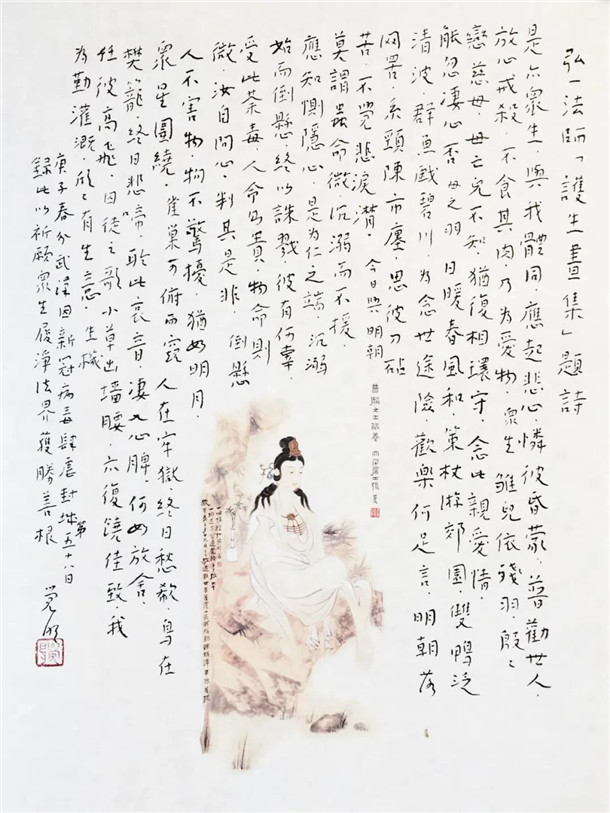 弘一法師「護生畫集」題詩
是亦衆生，與我體同，應起悲心，憐彼昏蒙，普勸世人，
放心戒殺，不食其肉，乃為愛物，衆生 雛兒依殘羽，殷〻
戀慈母，母亡兒不知，猶復相環守，念此親愛情，
能忽淒心否 母之羽 日暖春風和，策杖游郊園，雙鴨泛
清波，群魚戲碧川，為念世途險，歡樂何足言，明朝落
网罟，系頸陳市廛，思彼刀砧
苦，不覺悲淚潸，今日與明朝
莫謂蟲命微，沉溺而不援
應知惻隱心，是為仁之端，沉溺
始而倒懸，終以誅戮，彼有何辜，
受此荼毒，人命為貴，物命則
微，汝自問心，判其是非，倒懸
人不害物，物不驚擾，猶如明月，
衆星圍繞，雀巢可俯而窺 人在牢獄，終日愁欷，鳥在
樊籠，終日悲啼，聆此哀音，淒入心脾，何如放舍，
任彼高飛，囚徒之歌 小草出墻腰，亦復饒佳致，我
為勤灌溉，欣〻有生意，生機
庚子春分武漢因新冠病毒肆虐封城第五十八日
錄此以祈願衆生履淨法界獲勝善根
覺明